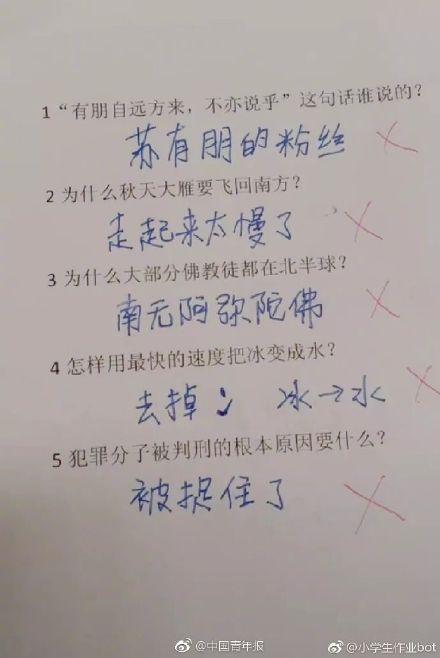 1“有朋自远方来，不亦说乎”这句话谁说的？
苏有朋的粉丝
2 为什么秋天大雁要飞回南方？
走起来太慢了
3 为什么大部分佛教徒都在北半球？
南无阿弥陀佛
4 怎样用最快的速度把冰变成水？
去掉冫 冰→水
5 犯罪分子被判刑的根本原因要什么？
被捉住了
@中国青年报 @小学生作业bot